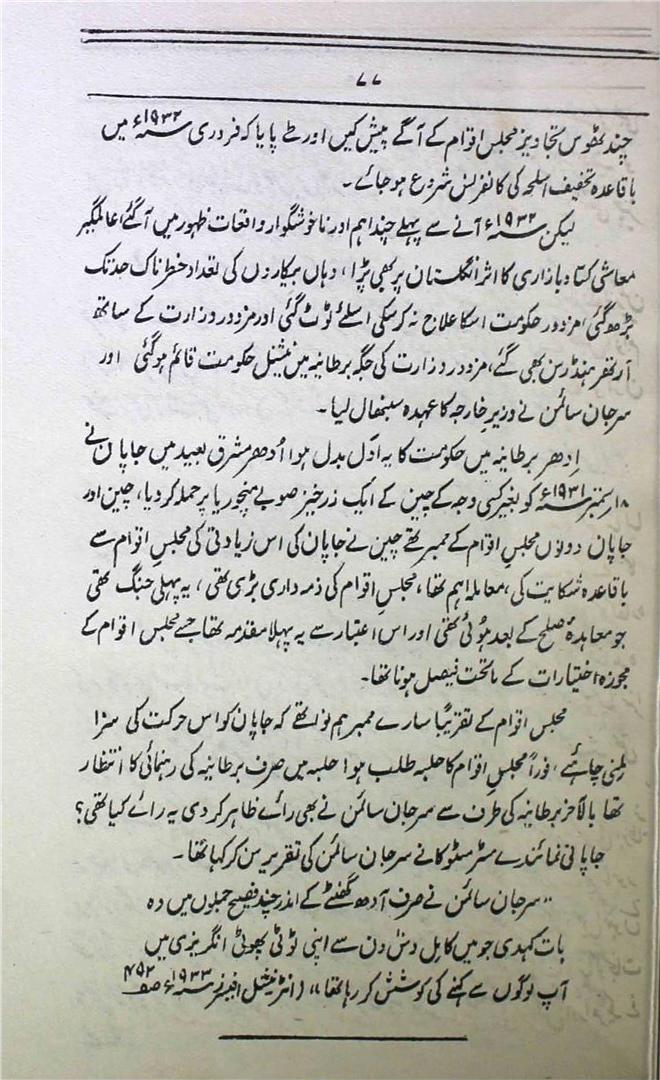 ۷۷
چند ٹھوس تجاویز مجلس اقوام کے آگے پیش کیں اور طے پایا کہ فروری ۱۹۳۲ء میں
باقاعدہ تخفیف اسلحہ کی کانفرنس شروع ہو جائے۔
لیکن ۱۹۳۲ء آنے سے پہلے چند اہم اور ناخوشگوار واقعات ظہور میں آگئے، عالمگیر
معاشی کساد بازاری کا اثر انگلستان پر بھی پڑا، وہاں بیکاروں کی تعداد خطرناک حد تک
بڑھ گئی، مزدور حکومت اسکا علاج نہ کرسکی اسلئے ٹوٹ گئی اور مزدور وزارت کے ساتھ
آرتھر ہنڈرسن بھی گئے، مزدور وزارت کی جگہ برطانیہ میں نیشنل حکومت قائم ہو گئی اور
سر جان سائمن نے وزیر خارجہ کا عہدہ سنبھال لیا۔
اِدھر برطانیہ میں حکومت کا یہ ادل بدل ہوا اُدھر مشرق بعید میں جاپان نے
۱۸ ستمبر ۱۹۳۱ء کو بغیر کسی وجہ کے چین کے ایک زرخیز صوبے منچوریا پر حملہ کردیا، چین اور
جاپان دونوں مجلس اقوام کے ممبر تھے چین نے جاپان کی اس زیادتی کی مجلسِ اقوام سے
باقاعدہ شکایت کی، معاملہ اہم تھا، مجلس اقوام کی ذمہ داری بڑی تھی، یہ پہلی جنگ تھی
جو معاہدۂ صلح کے بعد ہوئی تھی اور اس اعتبار سے یہ پہلا مقدمہ تھا جسے مجلس اقوام کے
مجوزہ اختیارات کے ماتحت فیصل ہونا تھا۔
مجلس اقوام کے تقریباً سارے ممبر ہم نوا تھے کہ جاپان کو اس حرکت کی سزا
ملنی چاہئے، فوراً مجلسِ اقوام کا جلسہ طلب ہوا جلسہ میں صرف برطانیہ کی رہنمائی کا انتظار
تھا بالآخر برطانیہ کی طرف سے سر جان سائمن نے بھی رائے ظاہر کردی یہ رائے کیا تھی؟
جاپانی نمائندے مسٹر مٹسوکا نے سر جان سائمن کی تقریر سن کر کہا تھا۔
"سر جان سائمن نے صرف آدھ گھنٹے کے اندر چند فصیح جملوں میں وہ
بات کہدی جو میں کامل دس دن سے اپنی ٹوٹی پھوٹی انگریزی میں
آپ لوگوں سے کہنے کی کوشش کر رہا تھا" (انٹرنیشنل افیئرز ۱۹۳۳ء صفحہ ۴۹۲